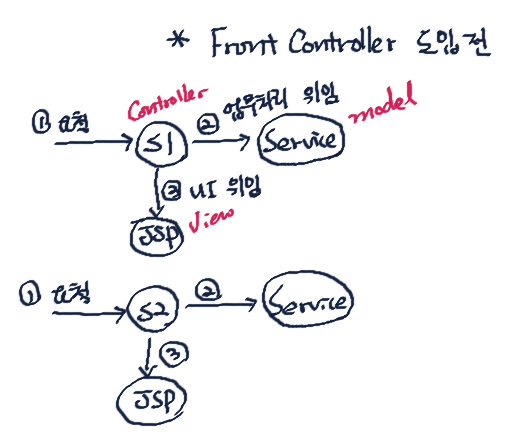 * Front Controller 도입전
Controller
① 요청
S1
② 업무처리 위임
Service
model
③ UI 위임
JSP
View
① 요청
S2
②
Service
③
JSP